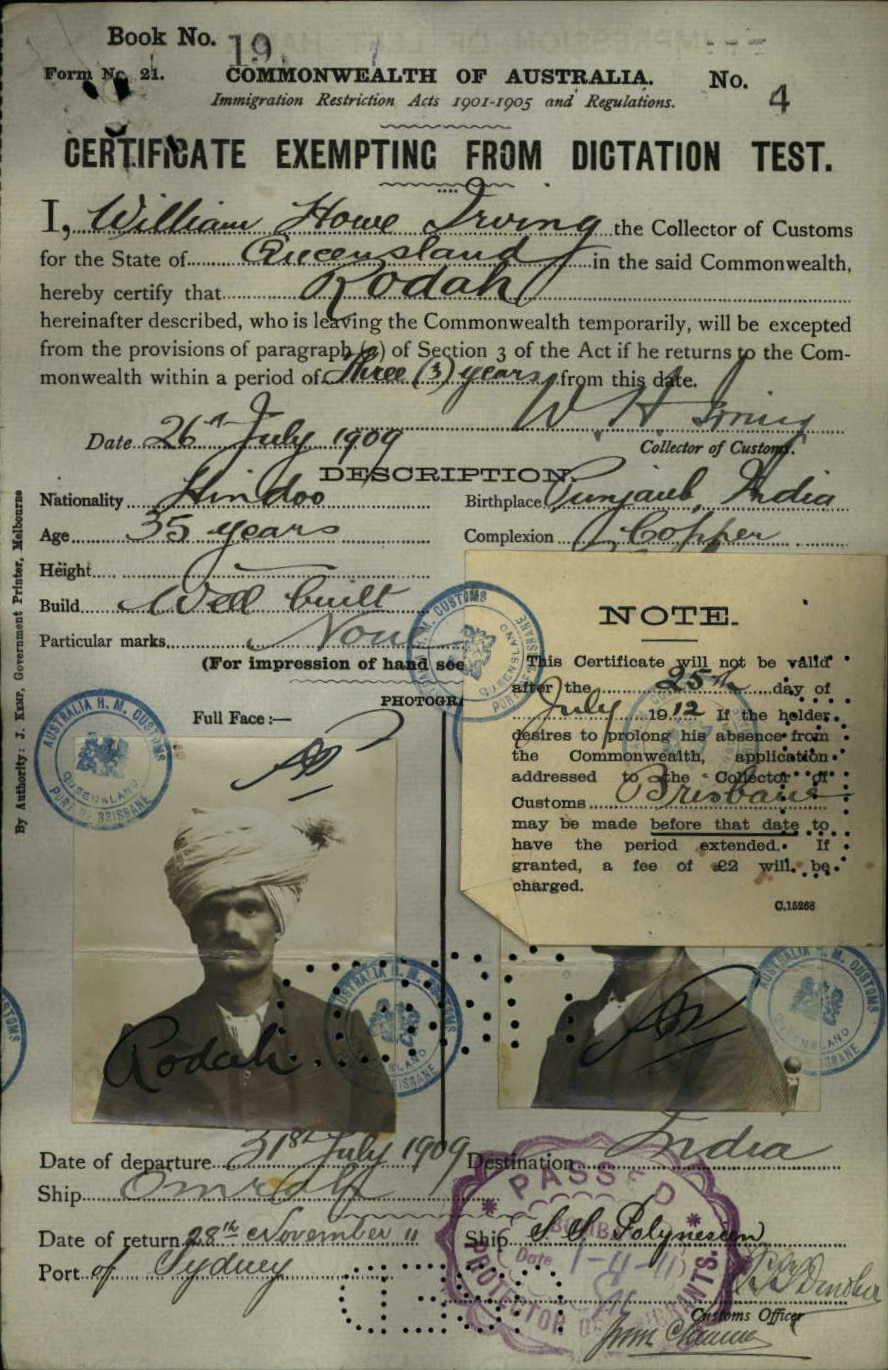 Book No. 19
Form No. 21. COMMONWEALTH OF AUSTRALIA. No. 4
Immigration Restriction Acts 1901-1905 and Regulations.
CERTIFICATE EXEMPTING FROM DICTATION TEST.
I, William Howe Irving the Collector of Customs
for the State of Queensland in the said Commonwealth,
hereby certify that Rodah
hereinafter described, who is leaving the Commonwealth temporarily, will be excepted
from the provisions of paragraph (a) of Section 3 of the Act if he returns to the Com-
monwealth within a period of three (3) years from this date.
W. H. Irving
Date 26th July 1909 Collector of Customs.
DESCRIPTION.
Nationality Hindoo Birthplace Punjaub, India
Age 35 years Complexion Copper
Height
Build Well built
Particular marks None
(For impression of hand see
PHOTOGRA
Full Face:—
NOTE.
This Certificate will not be valid
after the 25th day of
July 1912 If the holder
desires to prolong his absence from
the Commonwealth, application
addressed to the Collector of
Customs Brisbane
may be made before that date to
have the period extended. If
granted, a fee of £2 will be
charged.
C.15268
AUSTRALIA H. M. CUSTOMS
QUEENSLAND
PORT OF BRISBANE
Rodah.
Date of departure 31st July 1909 Destination India
Ship Omrah
Date of return 28th November 11 Ship S S Polynesien
Port of Sydney
Customs Officer
PASSED
Date 1-11-11
PROTECTOR OF EMIGRANTS.
By Authority: J. KEMP, Government Printer, Melbourne